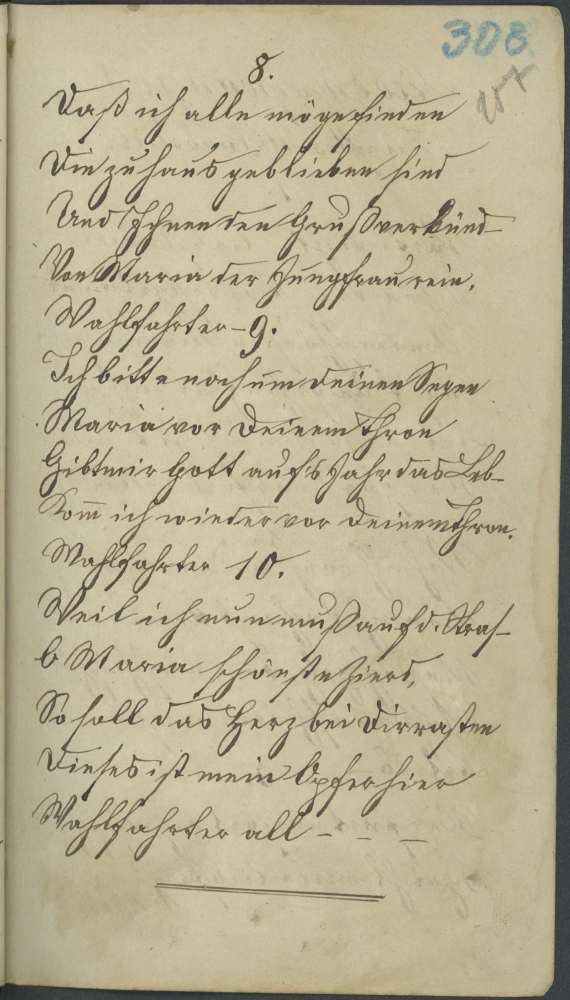 308.
8.
Daß ich alle möge finden
Die zu haus geblieben sind
Und Ihnen den Gruß verkünd-
Von Maria der Jungfrau rein.
Wahlfahrter - 9.
Ich bitte noch um deinen Segen
Maria vor Deinem Thron
Gibt mir Gott auf's Jahr das Leb-
Kom̅ ich wieder vor Deinem Thron.
Wahlfahrter 10.
Weil ich nun muß auf d. Stras-
O Maria schönste Zierd,
So soll das Herz bei Dir rasten
Dieses ist mein Opfer hier
Wahlfahrter all - - -